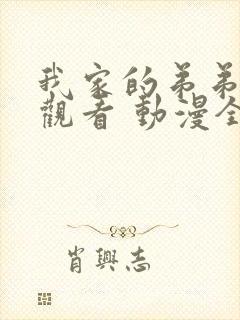 我家的弟弟
觀看 動漫全
肖興志